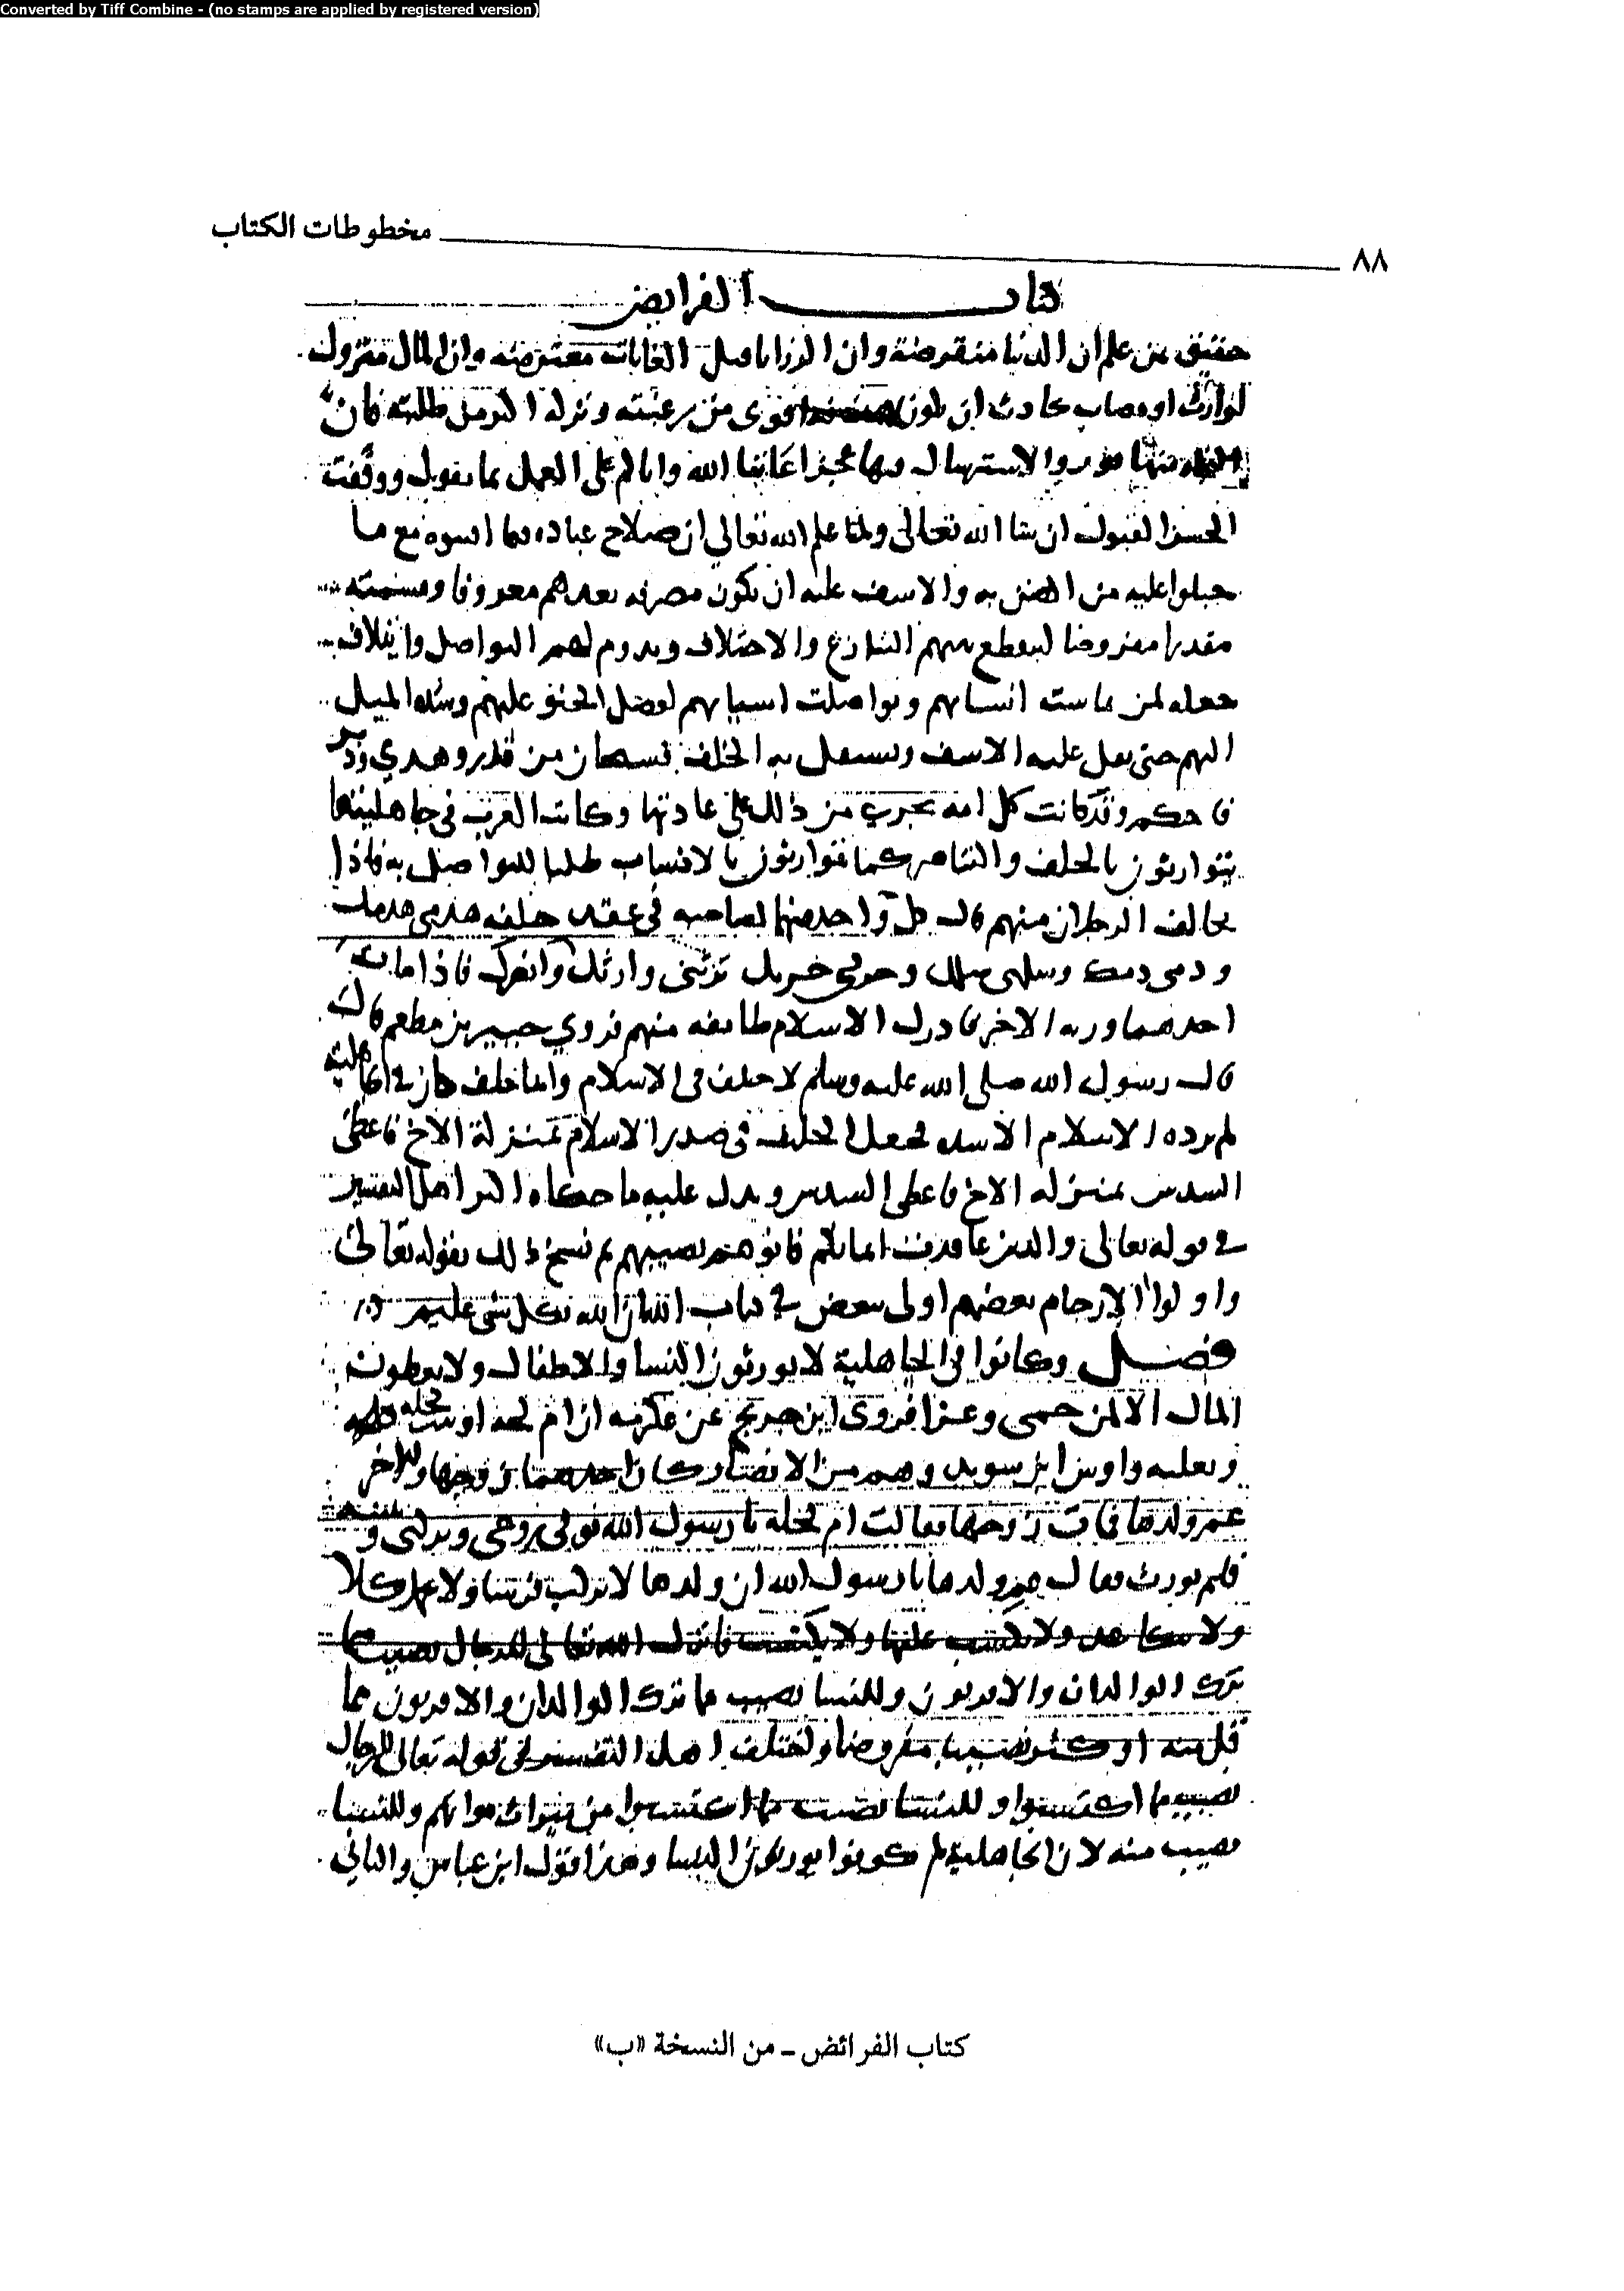 Converted by Tiff Combine - (no stamps are applied by registered version)
مخطوطات الكتاب
٨٨
كتاب الفرايض
حقيق من علم ان الدنيا منقرضة وان الرزايا قبل الغايات معترضه وان المال متروك
لوارث او مصاب بحادث ان يكون اقوى من رغبته وتركه اكثر من طلبته فان
منها والاسترسال بها عجز اعاننا الله واياكم على العمل بما نقول ووفقت
الحسن القبول ان شا الله تعالى ولما علم الله تعالى ان صلاح عباده فيما مع ما
جبلوا عليه من الضن به والاسف عليه ان يكون مصرفه بعدهم معروفا وقسمته
مقدرا مفروضا لينقطع بينهم التنازع والاختلاف ويدوم لهم التواصل وايتلاف
جعله لمن تماست انسابهم وتواصلت اسبابهم لفضل الحنو عليهم وشدة الميل
اليهم حتى يقل عليه الاسف ويستقل به الخلف فسبحان من قدر وهدى ودبر
فاحكم وقد كانت كل امه تجري من ذلك على عادتها وكانت العرب في جاهليتها
يتوارثون بالحلف والتناصر كما يتوارثون بالانساب طلبا للتواصل به فاذا
تحالف الرجلان منهم قال كل واحد منهما لصاحبه في عقد حلفه هدمي هدمك
ودمي دمك وسلمي سلمك وحربي حربك ترثني وارثك وانصرك فاذا مات
احدهما ورثه الاخر فادرك الاسلام طايفه منهم فروي جبير بن مطعم قال
قال رسول الله صلى الله عليه وسلم لا حلف في الاسلام وايما حلف كان في الجاهلية
لم يرده الاسلام الا شده فجعل الحلف في صدر الاسلام بمنزلة الاخ فاعطى
السدس بمنزله الاخ فاعطى السدس ويدل عليه ما حكاه اكثر اهل التفسير
في قوله تعالى والذين عاقدت ايمانكم فاتوهم نصيبهم ثم نسخ ذلك بقوله تعالى
واولوا الارحام بعضهم اولى ببعض في كتاب الله ان الله بكل شي عليم
فصل وكانوا في الجاهلية لا يورثون النسا والاطفال ولا يعطون
المال الا لمن حمى وغزا فروى ابن جريج عن عكرمه ان ام كحه او بنت كحله
وثعلبه واوس ابن سويد وهم من الانصار وكان احدهما زوجها والاخر
عم ولدها فمات زوجها فقالت ام كحله يا رسول الله توفي زوجي وتركني و
فلم نورث فقال عم ولدها يا رسول الله ان ولدها لا تركب فرسا ولا تحمل كلا
ولا ولا يكتسب عليها ولا يكتسب فانزل الله تعالى للرجال نصيب مما
ترك الوالدان والاقربون وللنسا نصيب مما ترك الوالدان والاقربون مما
قل منه او كثر نصيبا مفروضا واختلف اهل التفسير في قوله تعالى للرجال
نصيب مما اكتسبوا وللنسا نصيب مما اكتسبوا من ميراث موتاهم وللنسا
نصيب منه لان الجاهلية لم يكونوا يورثون النسا وهذا قول ابن عباس والثاني
كتاب الفرائض - من النسخة «ب»